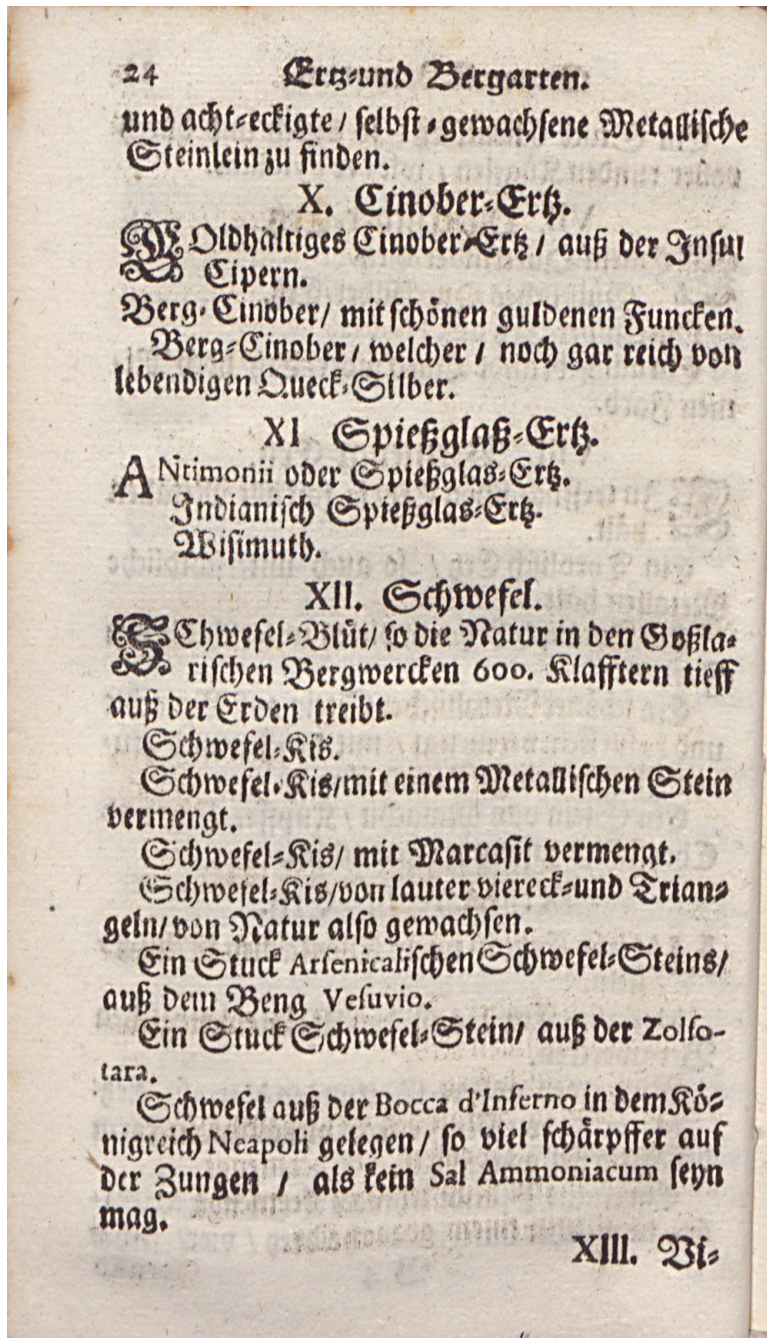 24 Ertz-und Bergarten.
und acht-eckigte / selbst-gewachsene Metallische
Steinlein zu finden.
X. Cinober-Ertz.
GOldhaltiges Cinober-Ertz / auß der Insul
Cipern.
Berg-Cinober / mit schönen guldenen Funcken.
Berg-Cinober / welcher / noch gar reich von
lebendigen Queck-Silber.
XI Spießglaß-Ertz.
ANtimonii oder Spießglas-Ertz.
Indianisch Spießglas-Ertz.
Wisimuth.
XII. Schwefel.
SChwefel-Blüt / so die Natur in den Goßla-
rischen Bergwercken 600. Klafftern tieff
auß der Erden treibt.
Schwefel-Kis.
Schwefel-Kis / mit einem Metallischen Stein
vermengt.
Schwefel-Kis / mit Marcasit vermengt.
Schwefel-Kis / von lauter viereck-und Trian-
geln / von Natur also gewachsen.
Ein Stuck Arsenicalischen Schwefel-Steins /
auß dem Beng Vesuvio.
Ein Stuck Schwefel-Stein / auß der Zolfo-
tara.
Schwefel auß der Bocca d'Inferno in dem Kö-
nigreich Neapoli gelegen / so viel schärpffer auf
der Zungen / als kein Sal Ammoniacum seyn
mag.
XIII. Vi-